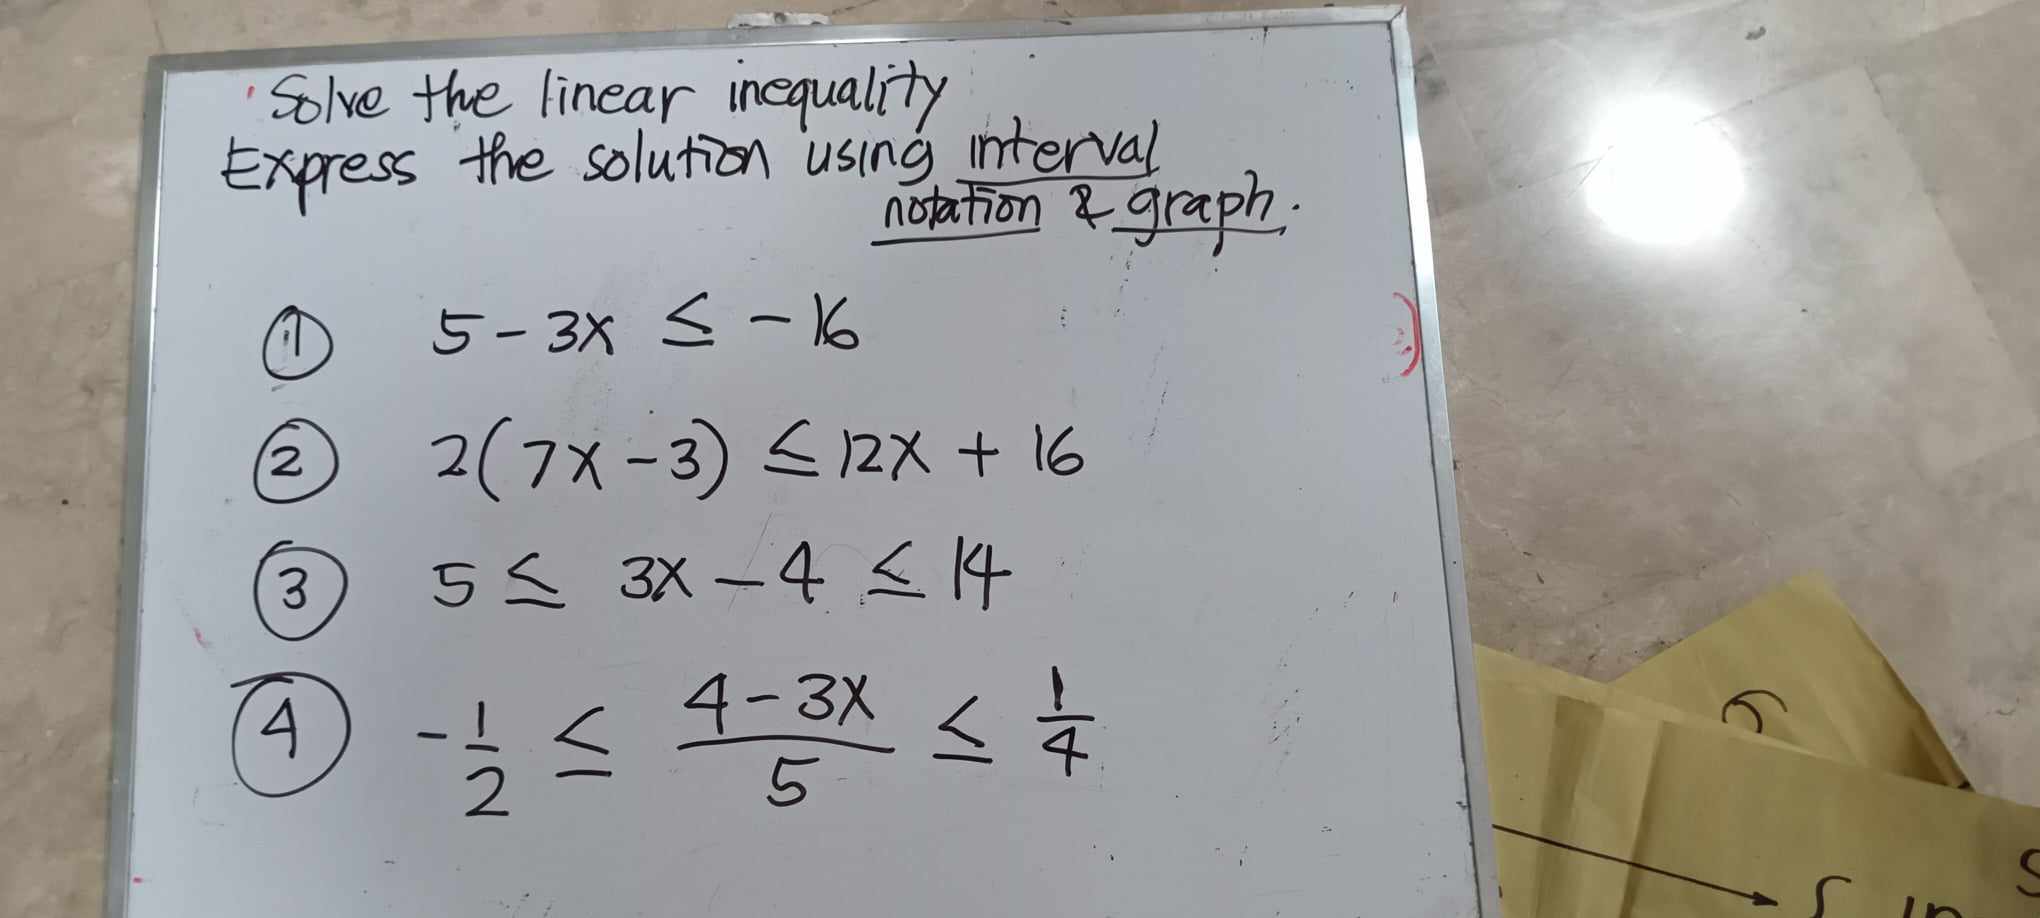 Solve the linear inequality
Express the solution using interval
notation & graph.
① 5 - 3x ≤ - 16
② 2(7x - 3) ≤ 12x + 16
③ 5 ≤ 3x - 4 ≤ 14
④ -1/2 ≤ (4 - 3x)/5 ≤ 1/4